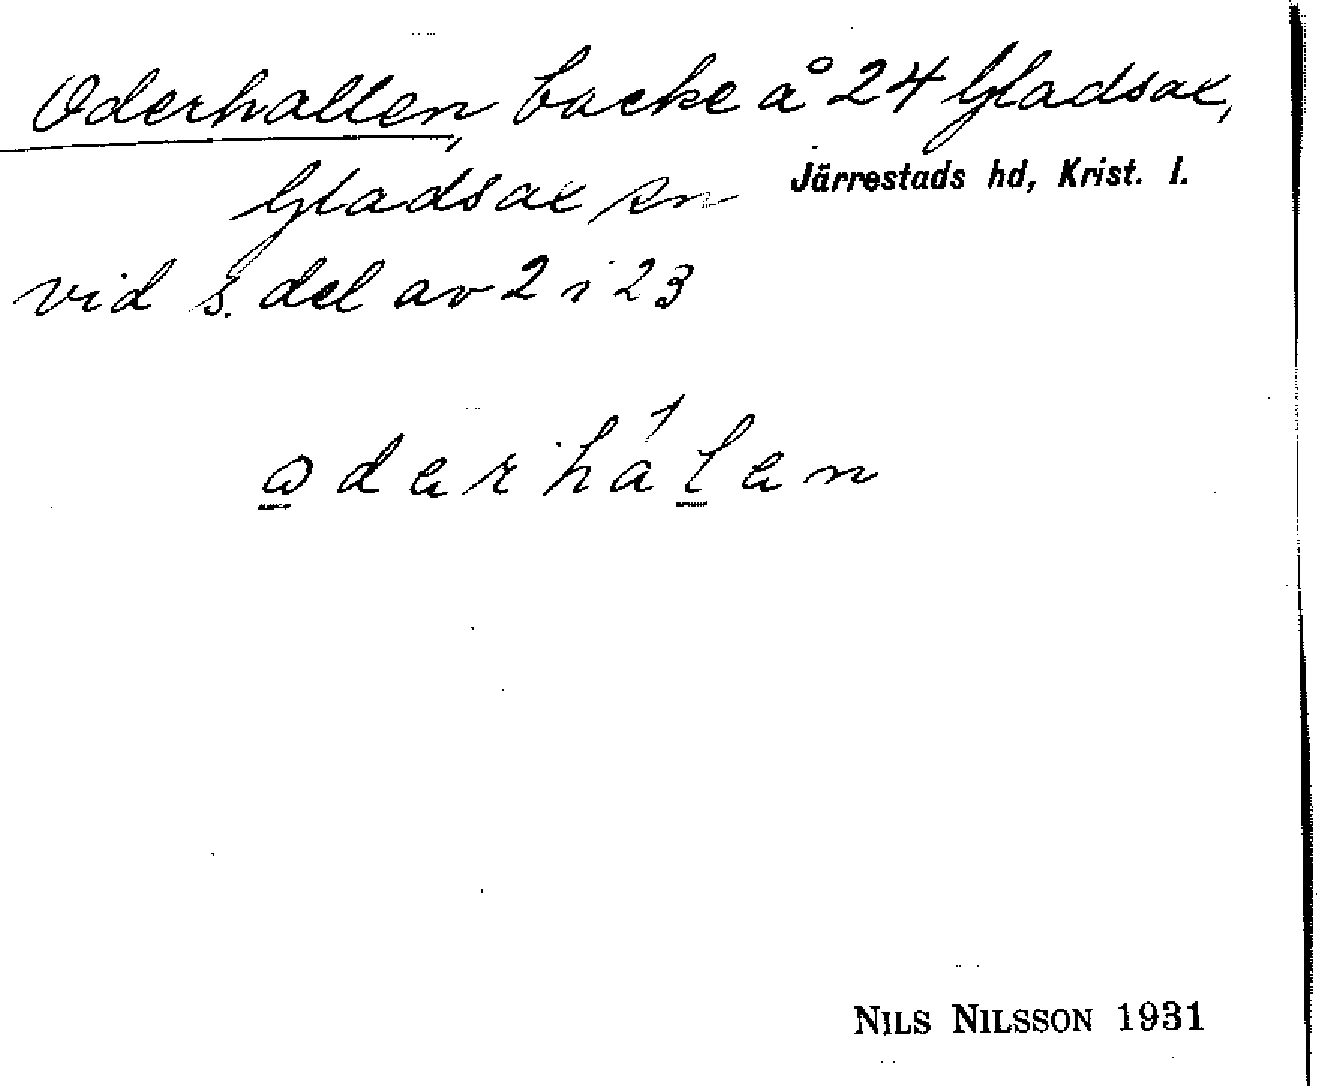 Oderhallen, backe å 24 Gladsax,
Gladsax sn Järrestads hd, Krist. l.
vid s. del av 2 i 23
oderhálen
NILS NILSSON 1931